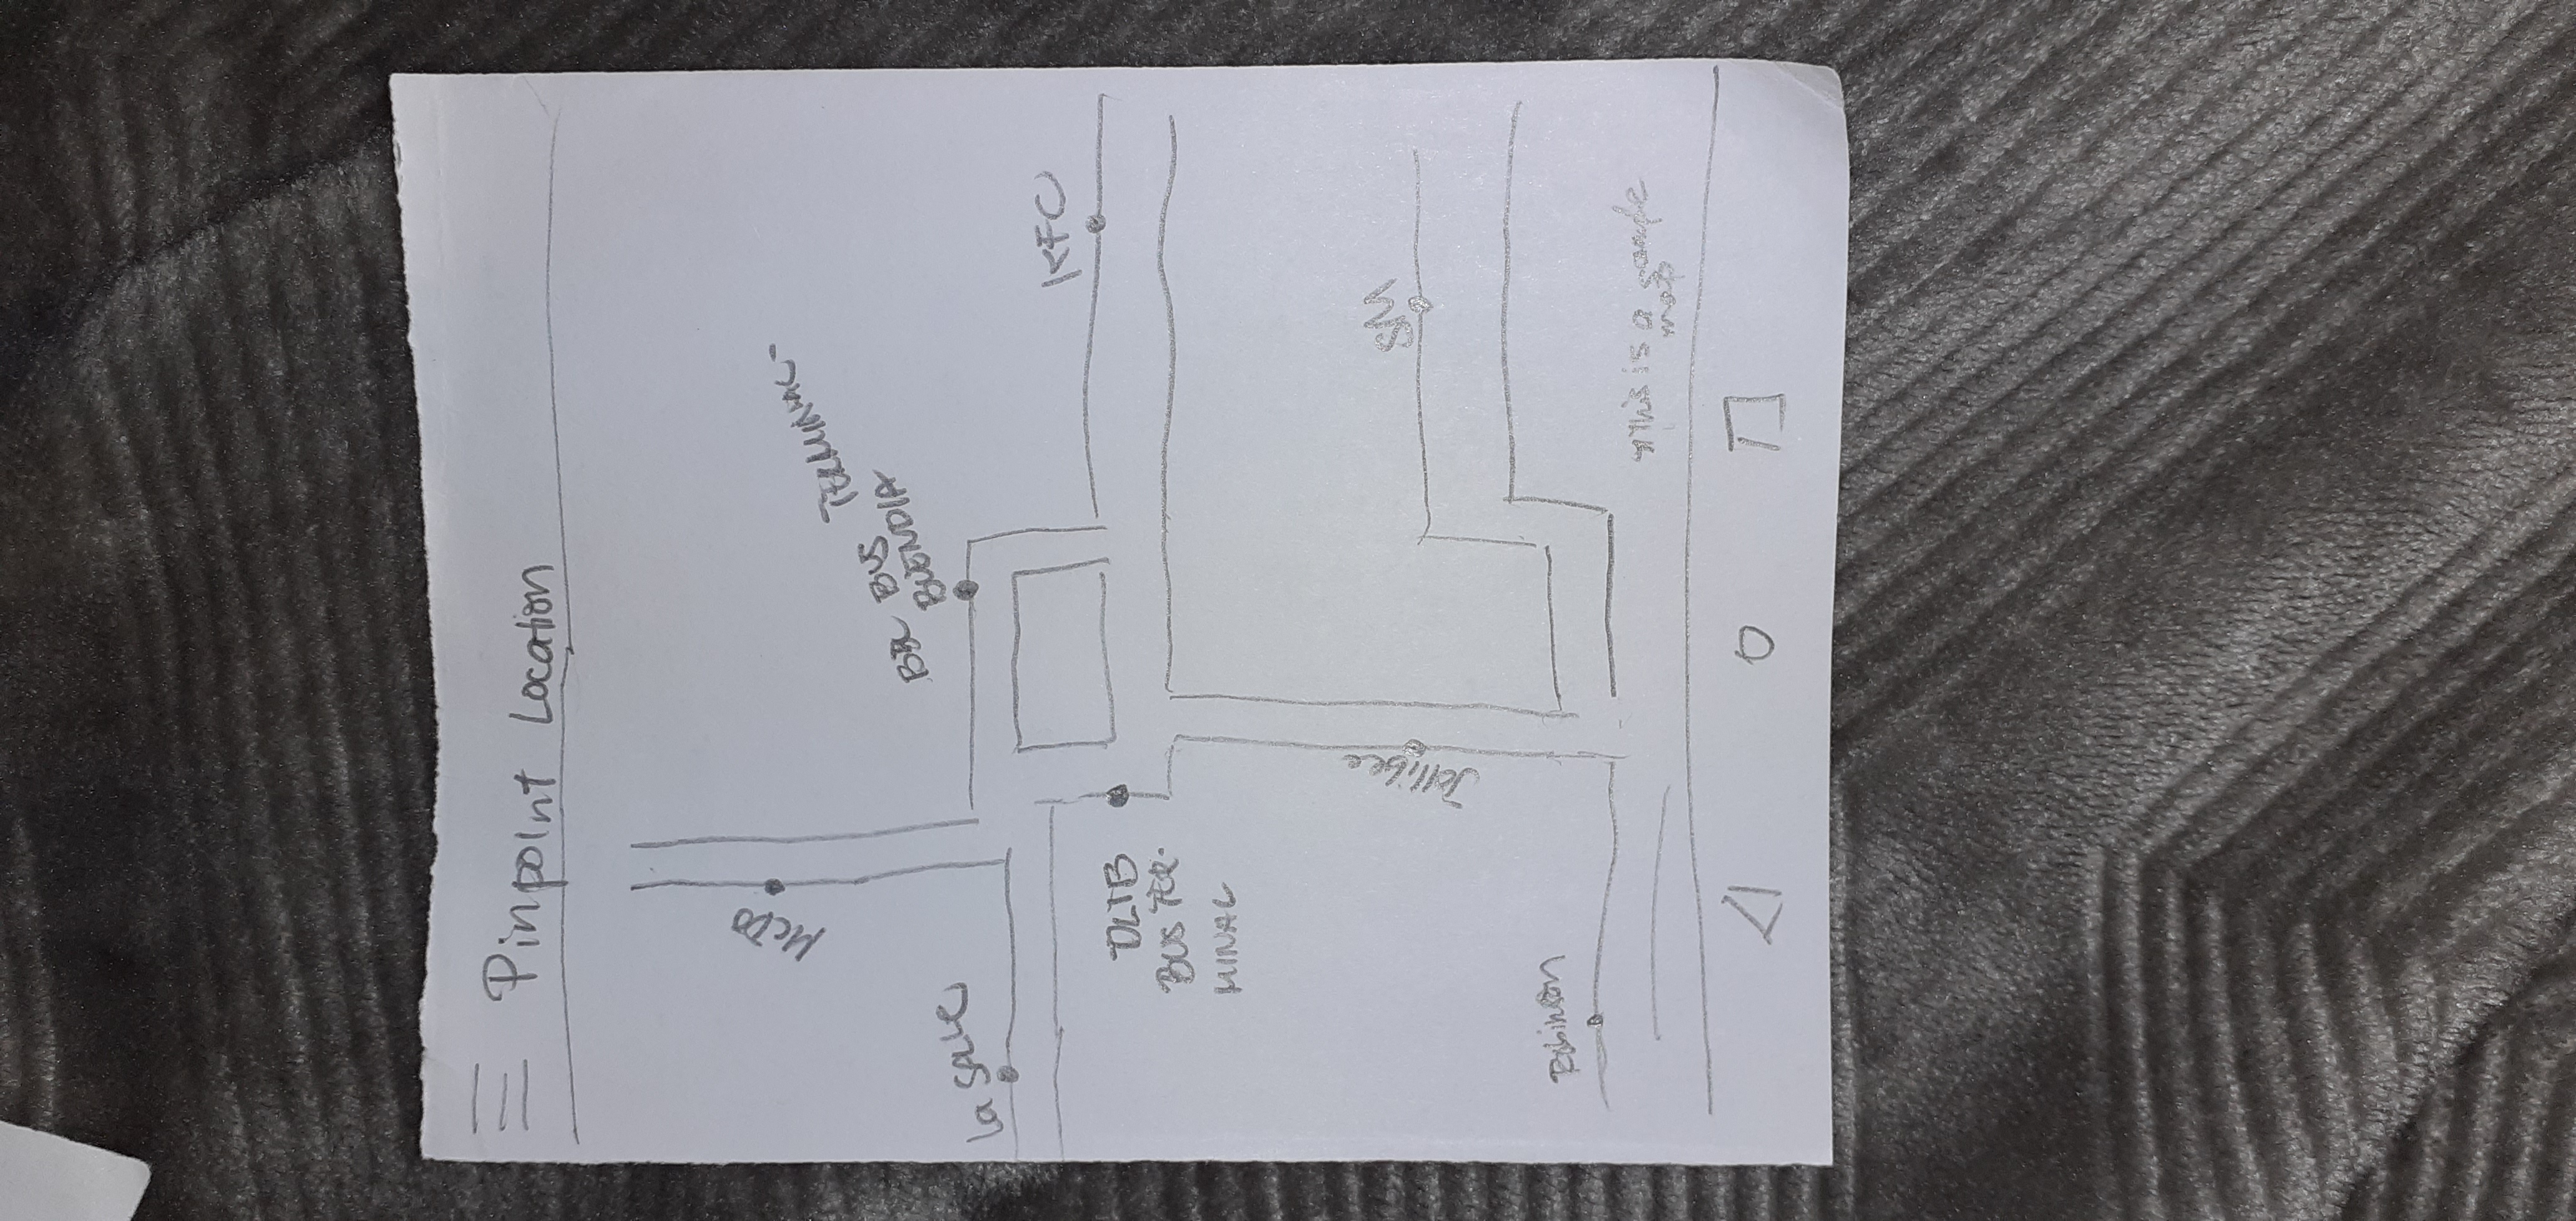 Pinpoint Location
McDO
BBL BUS TERMINAL-
BUENDIA
La SALLE
KFC
DLTB
BUS TER-
MINAL
Jollibee
SM
Robinson
*This is a sample
map